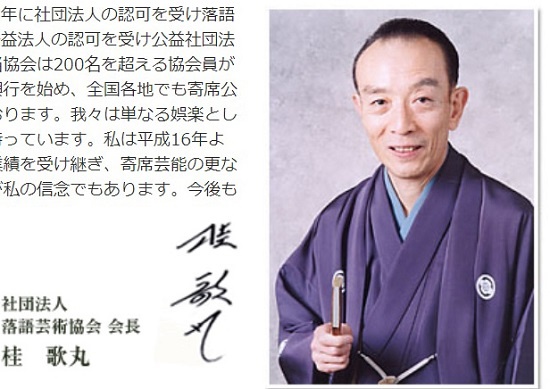 年に社団法人の認可を受け落語
益法人の認可を受け公益社団法
協会は200名を超える協会員が
行を始め、全国各地でも寄席公
ります。我々は単なる娯楽とし
っています。私は平成16年よ
績を受け継ぎ、寄席芸能の更な
が私の信念でもあります。今後も
桂
歌
丸
社団法人
落語芸術協会 会長
桂 歌丸